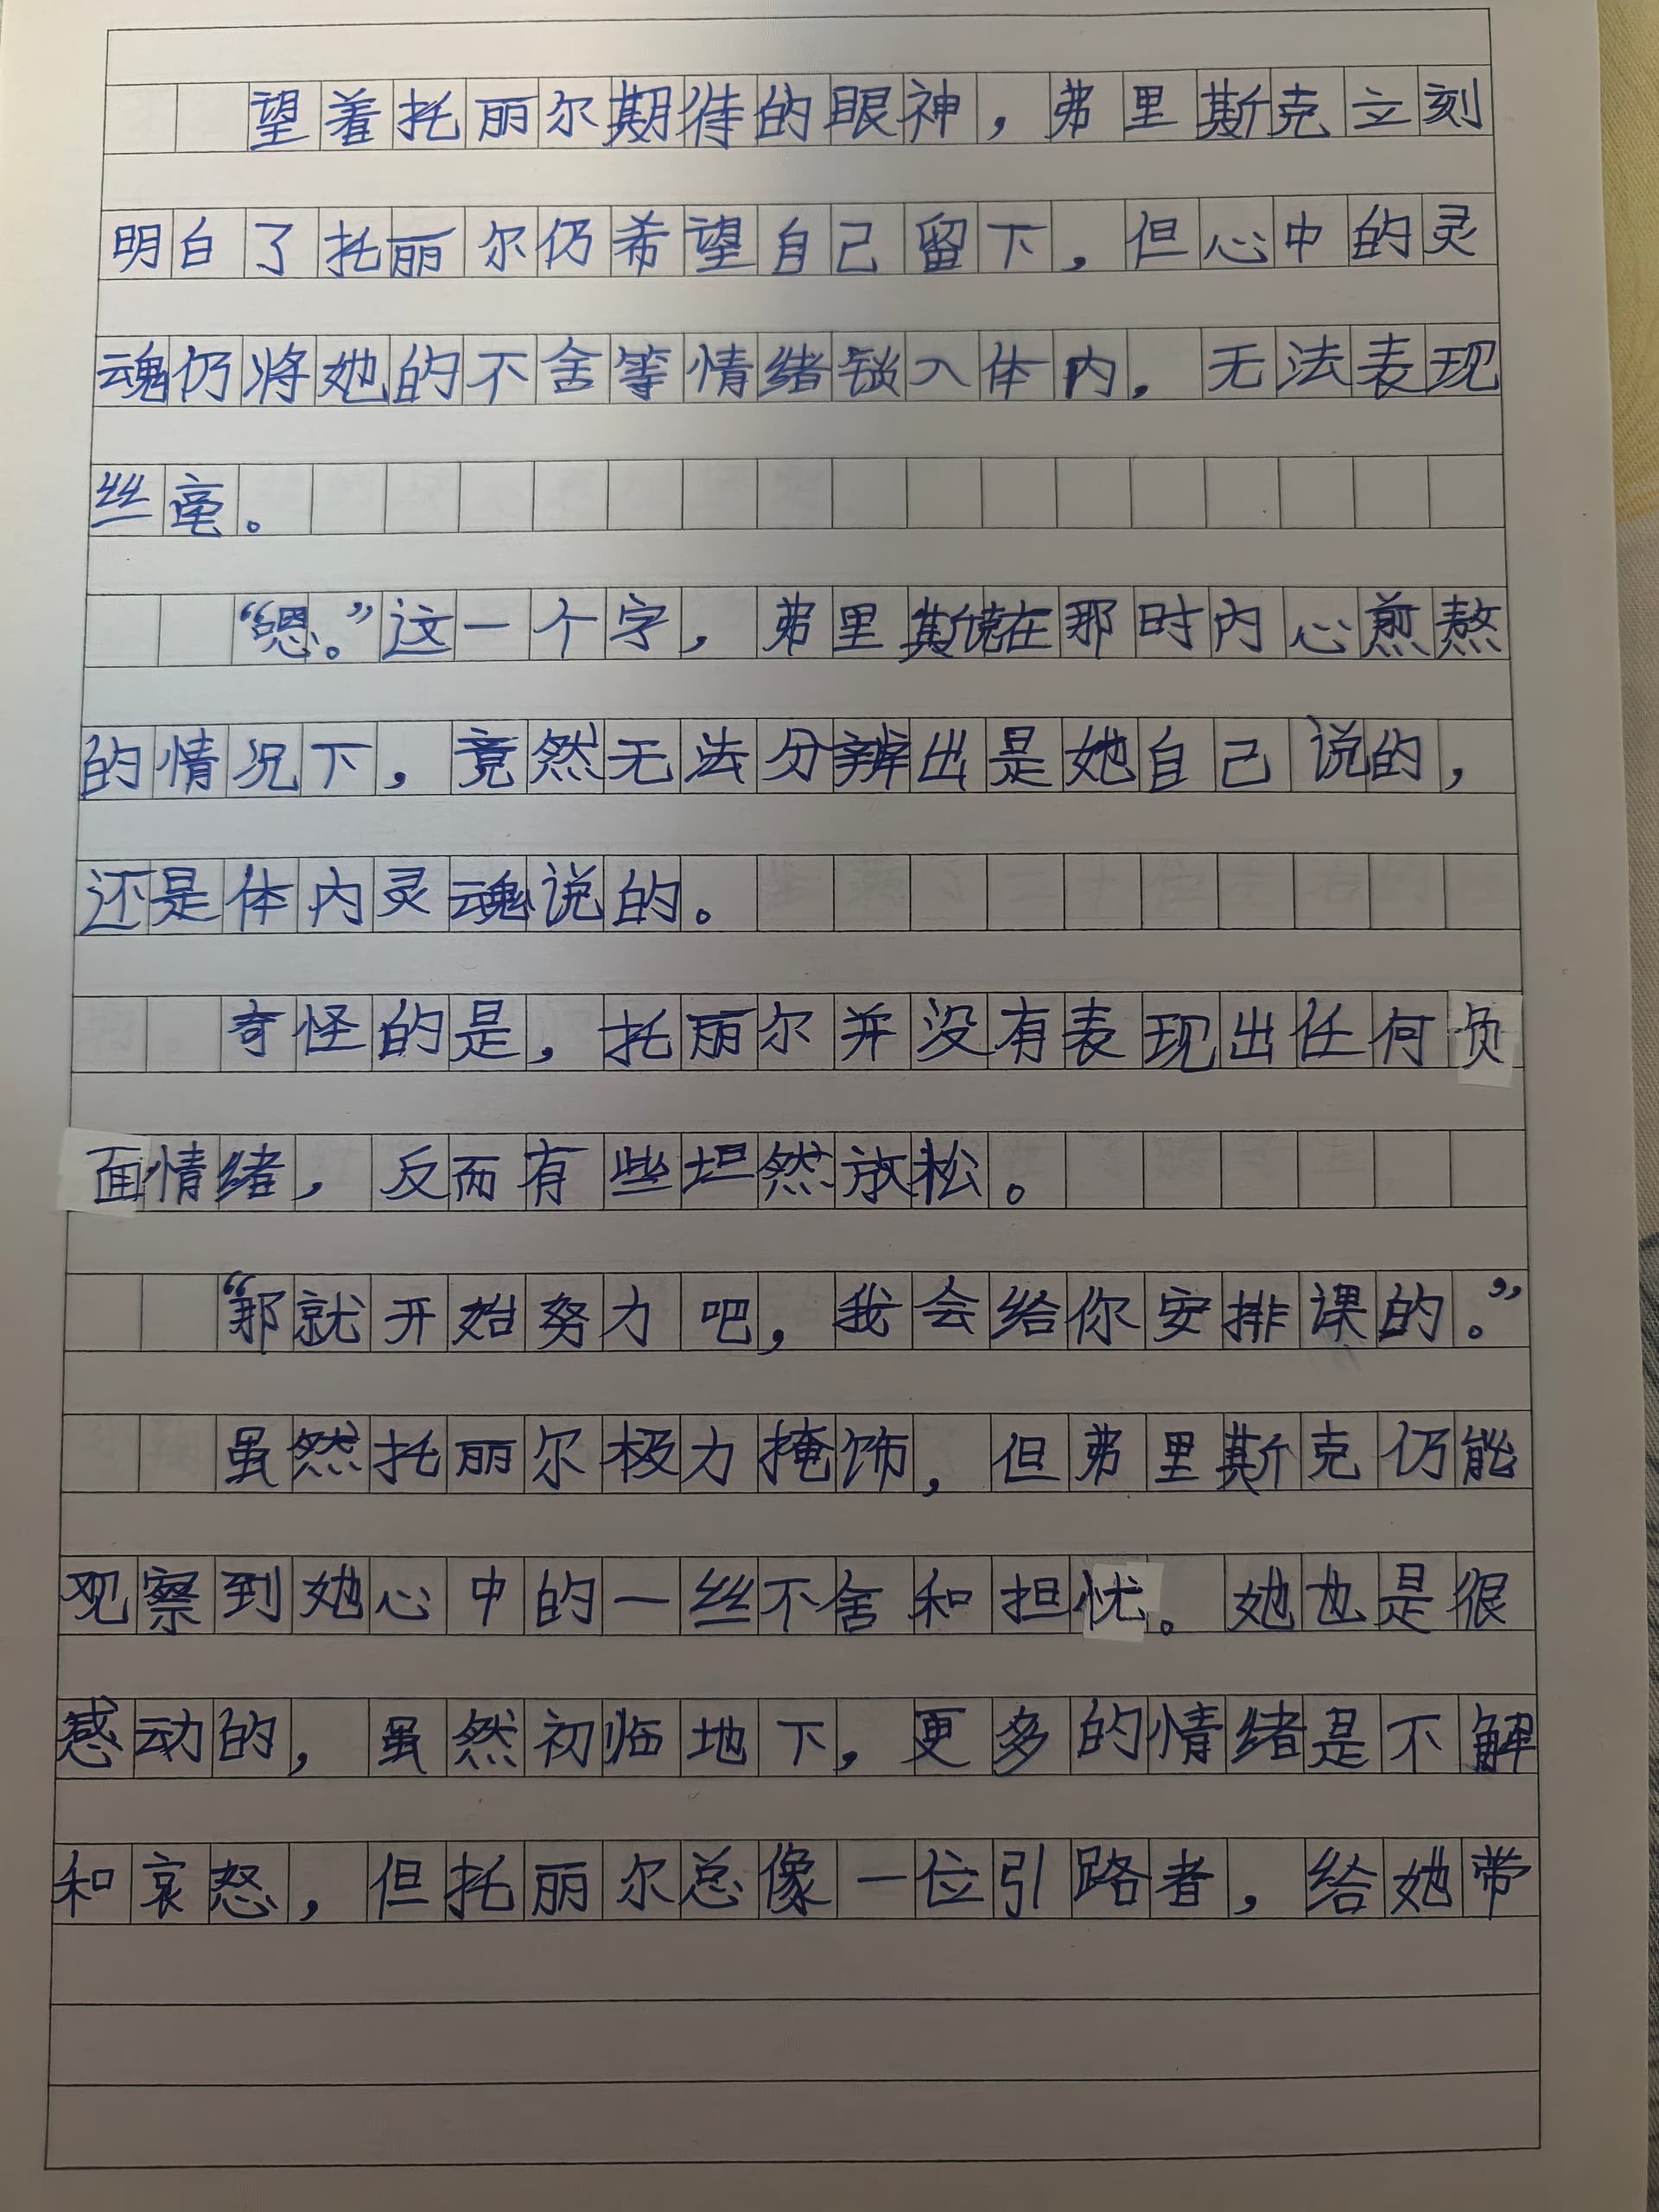 望着托丽尔期待的眼神，弗里斯克立刻
明白了托丽尔仍希望自己留下，但心中的灵
魂仍将她的不舍等情绪锁入体内，无法表现
丝毫。
“嗯。”这一个字，弗里斯克在那时内心煎熬
的情况下，竟然无法分辨出是她自己说的，
还是体内灵魂说的。
奇怪的是，托丽尔并没有表现出任何负
面情绪，反而有些坦然放松。
“那就开始努力吧，我会给你安排课的。”
虽然托丽尔极力掩饰，但弗里斯克仍能
观察到她心中的一丝不舍和担忧。她也是很
感动的，虽然初临地下，更多的情绪是不解
和哀怒，但托丽尔总像一位引路者，给她带